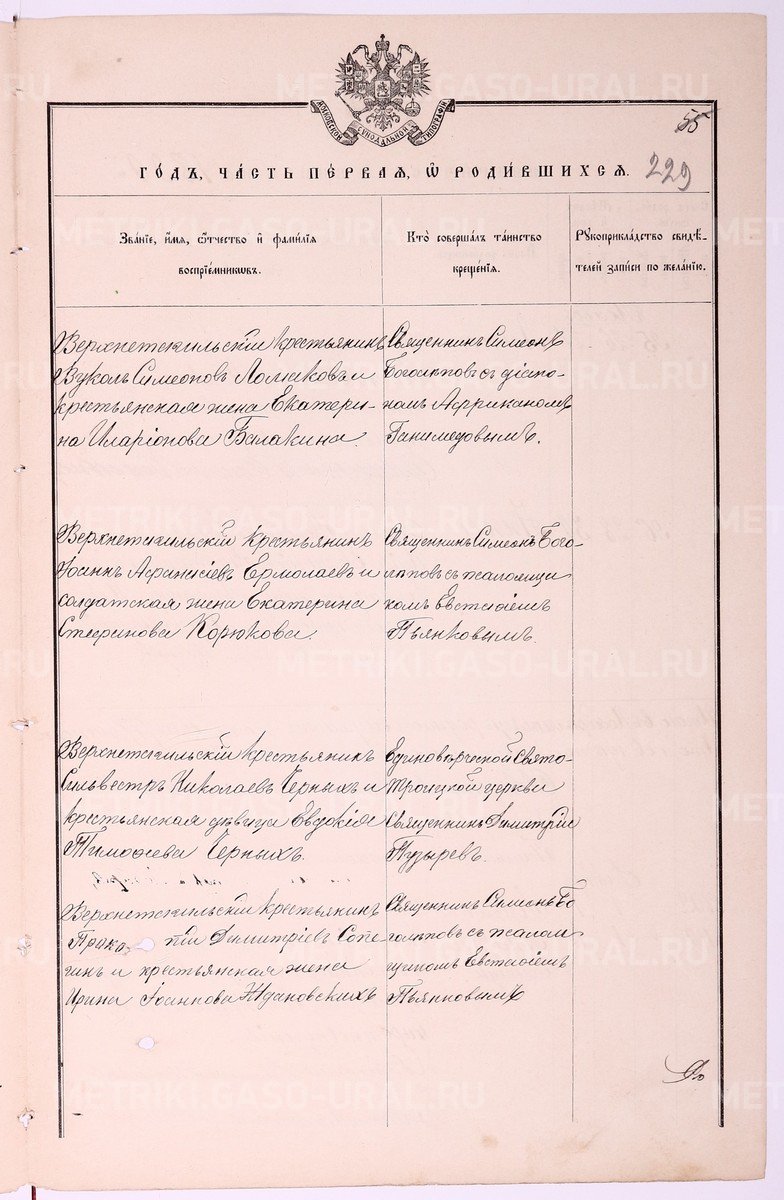 МОСКОВСКОЙ СѴНОДАЛЬНОЙ ТИПОГРАФІИ
55
ГО́ДЪ, ЧА́СТЬ ПЕ́РВАЯ, Ѡ҆ РОДИ́ВШИХСЯ.
229
Зва́нїе, и҆́мя, ѻ҆́тчество и҆ фами́лїя
воспрїе́мникωвъ.
Кто̀ соверша́лъ та́инство
креще́нїя.
Рꙋкоприкла́дство свидѣ́-
телей за́писи по жела́нїю.
Верхнетагильскій крестьянинъ
Вуколъ Симеоновъ Ломаковъ и
крестьянская жена Екатери-
на Иларіонова Балакина.
Священникъ Симеонъ
Боголѣповъ съ діако-
номъ Африканомъ
Ганимедовымъ.
Верхнетагильскій крестьянинъ
Іоаннъ Афанасіевъ Ермолаевъ и
солдатская жена Екатерина
Стефанова Корюкова.
Священникъ Симеонъ Бого-
лѣповъ съ псаломщи
комъ Евстаѳіемъ
Пьянковымъ.
Верхнетагильскій крестьянинъ
Сильвестръ Николаевъ Черныхъ и
крестьянская дѣвица Евдокія
Тимоѳеева Черныхъ.
Единовѣрческой Свято-
Троицкой церкви
Священникъ Димитрій
Пузыревъ.
Верхнетагильскій крестьянинъ
Проко пій Димитріевъ Сопе
гинъ и крестьянская жена
Ирина Іоаннова Ждановскихъ
Священникъ Симеонъ Бо
голѣповъ съ псалом
щикомъ Евстаѳіемъ
Пьянковымъ
METRIKI.GASO-URAL.RU